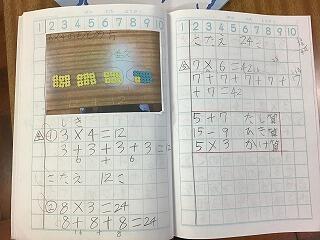 1 2 3 4 5 6 7 8 9 10
しき
① 3×4=12
3+3+3+3=12
6 6
こたえ 12こ
② 8×3=24
8+8+8=24
16 8
1 2 3 4 5 6 7 8 9 10
こたえ 24こ
7×6=42
7+7+7+7+7
+7=42
5+7 たし算
15-9 ひき算
5×3 かけ算